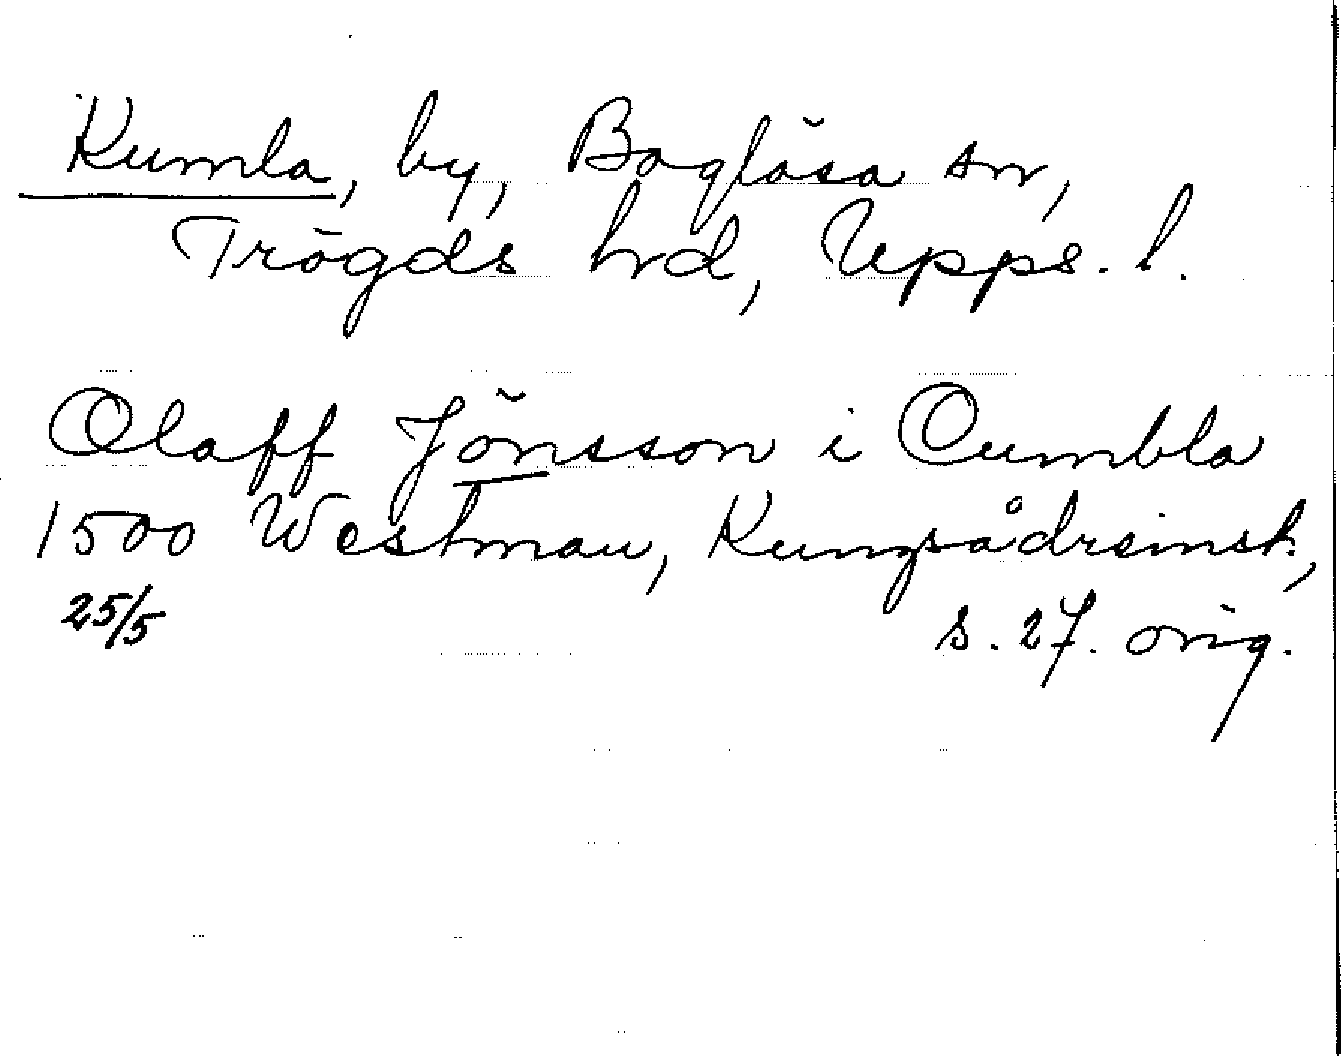 Kumla, by, Boglösa sn,
Trögds hrd, Upps. l.
Olaff Jönsson i Cumbla
1500 Westman, Kungsådreinsk.,
25/5 s. 27. orig.